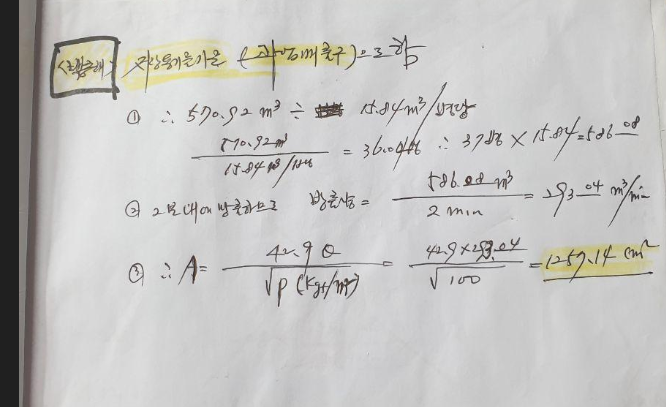 저장용기을 기준 (과압배출구)으로 함
① ∴ 570.92 m³ ÷ 15.84 m³/병당
570.92 m³ / 15.84 m³/병 = 36.04병 ∴ 37병 × 15.84 = 586.08
② 2분대에 방출하므로 방출량 = 586.08 m³ / 2 min = 293.04 m³/min
③ ∴ A = 42.9 Q / √P (kgf/m²) = 42.9×293.04 / √100 = 1257.14 cm²